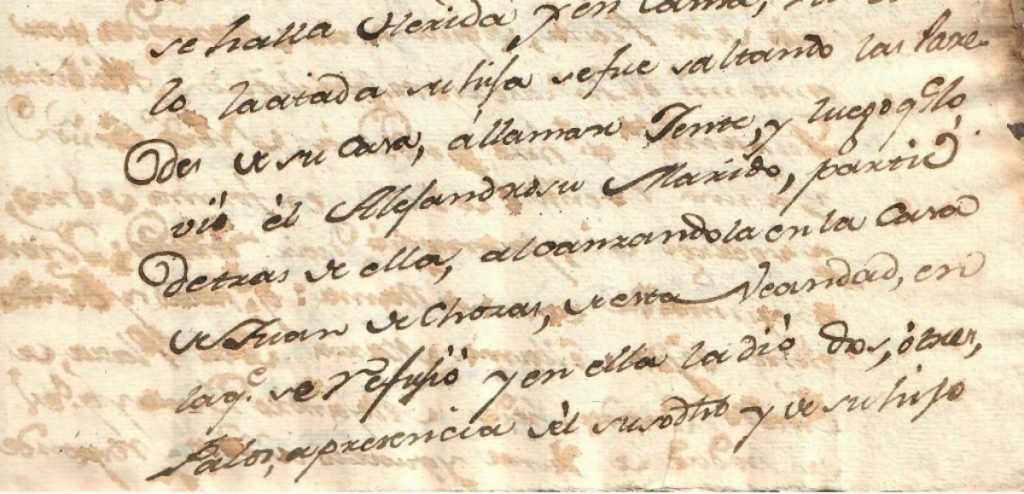 se halla Herida y en cama,
lo la citada su hija se fue saltando las Pare-
des de su casa, á llamar Jente, y luego qe. lo
vió él Alejandro su Marido, partió
detras de ella, alcanzandola en la Casa
de Juan de Chozas, de esta Vecindad, en
la q.e se refujió y en ella la dió dos, ó tres,
Palos, a presencia dél susodho y de su hijo